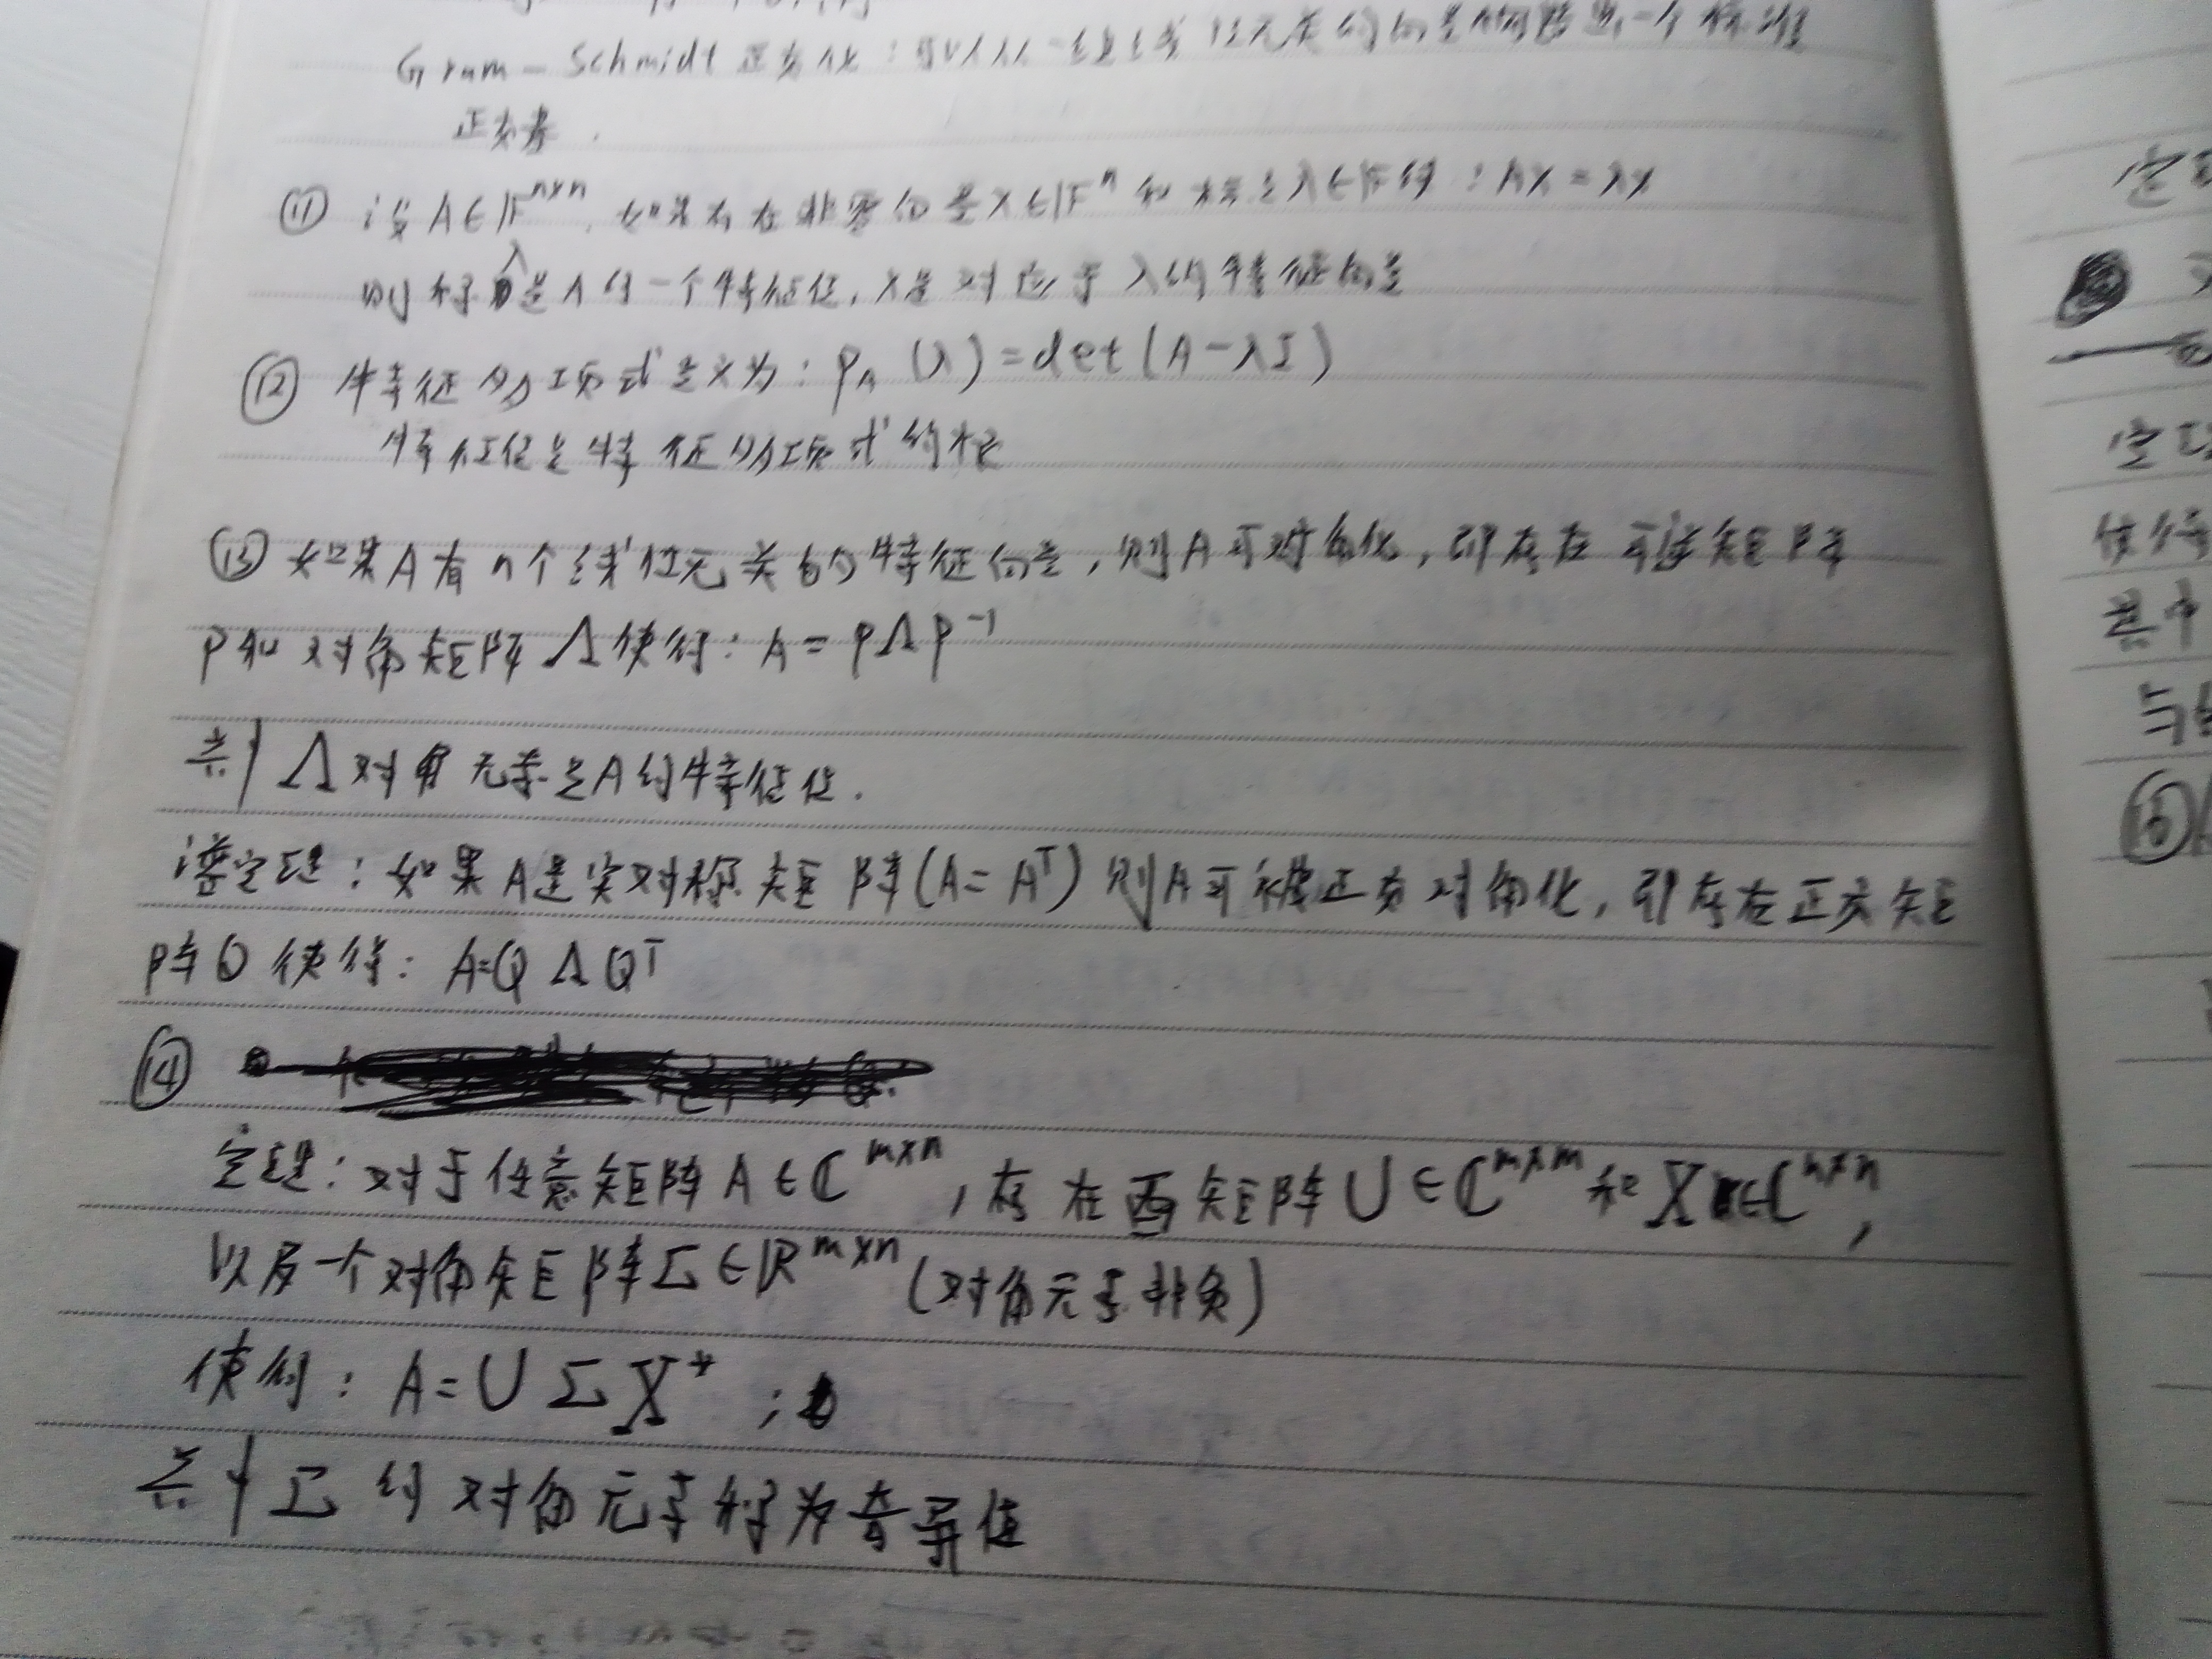 Gram-Schmidt正交化：可以从一组线性无关的向量构造出一个标准
正交基.
⑪ 设A∈𝔽^{n×n}, 如果存在非零向量x∈𝔽^n和标量λ∈𝔽使得：Ax=λx
则称λ是A的一个特征值, x是对应于λ的特征向量
⑫ 特征多项式定义为：p_A(λ)=det(A-λI)
特征值是特征多项式的根
⑬ 如果A有n个线性无关的特征向量, 则A可对角化, 即存在可逆矩阵
P和对角矩阵Λ使得：A=PΛP^{-1}
其中Λ对角元素是A的特征值.
谱定理：如果A是实对称矩阵(A=A^T)则A可被正交对角化, 即存在正交矩
阵Q使得：A=QΛQ^T
⑭
定理：对于任意矩阵A∈ℂ^{m×n}, 存在酉矩阵U∈ℂ^{m×m}和X∈ℂ^{n×n},
以及一个对角矩阵Σ∈ℝ^{m×n}(对角元素非负)
使得：A=UΣX^*;
其中Σ的对角元素称为奇异值
定
空
使得
其中
与
⑮